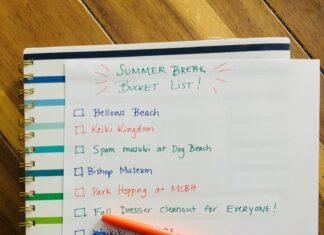 SUMMER BREAK
BUCKET LIST!
Bellows Beach
Keiki Kingdom
Spam musubi at Dog Beach
Bishop Museum
Park Hopping at MCBH
Full Dresser cleanout for EVERYONE!